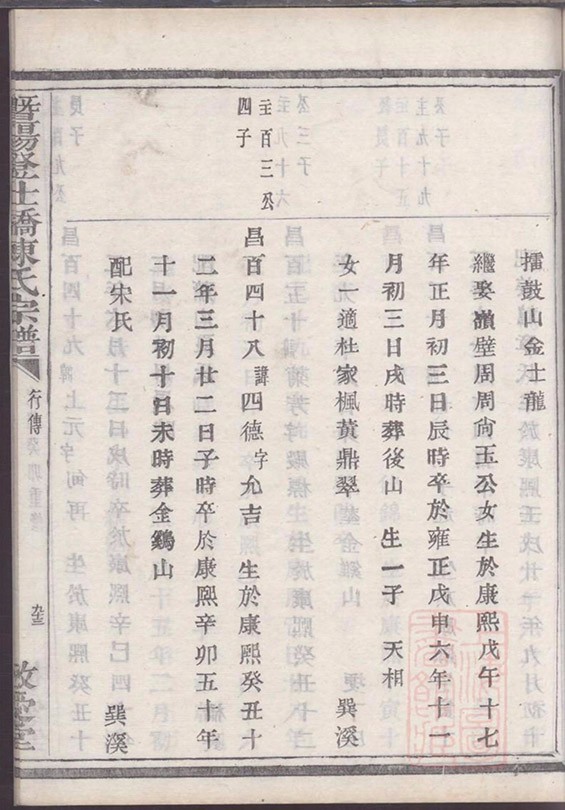 擂鼓山金士龍
繼娶嶺壁周周尙玉公女生於康熙戊午十七
年正月初三日辰時卒於雍正戊申六年十一
月初三日戌時葬後山 生一子 天相
女一適杜家楓黃鼎翠 巽溪
主百三公
四子
昌百四十八諱四德字允吉 生於康熙癸丑十
二年三月廿二日子時卒於康熙辛卯五十年
十一月初十日未時葬金鷄山
配宋氏 巽溪
暨陽登仕橋陳氏宗譜
行傳
癸卯重修
敦堂